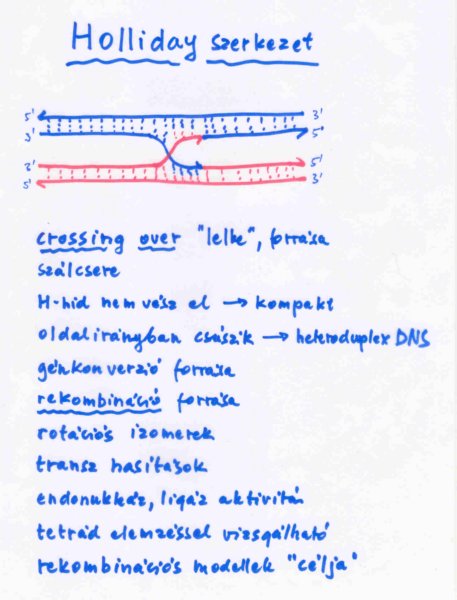 Holliday szerkezet
5' 3'
3' 5'
3' 5'
5' 3'
crossing over "lelke", forrása
szálcsere
H-híd nem vész el → kompakt
oldalirányban csúszik → heteroduplex DNS
génkonverzió forrása
rekombináció forrása
rotációs izomerek
transz hasítások
endonukleáz, ligáz aktivitás
tetrád elemzéssel vizsgálható
rekombinációs modellek "célja"